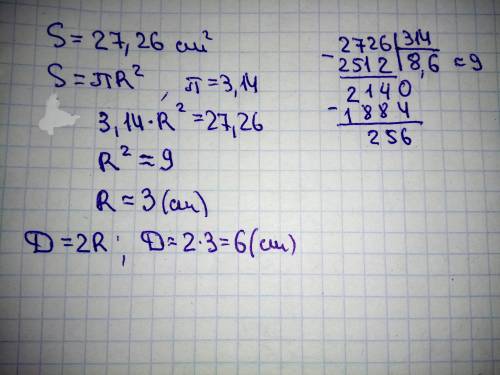 S = 27,26 см²
S = πR², π = 3,14
3,14·R² = 27,26
R² ≈ 9
R ≈ 3 (см)
D = 2R; D ≈ 2·3 = 6 (см)
2726 | 314
- 2512 | 8,6 ≈ 9
2140
- 1884
256